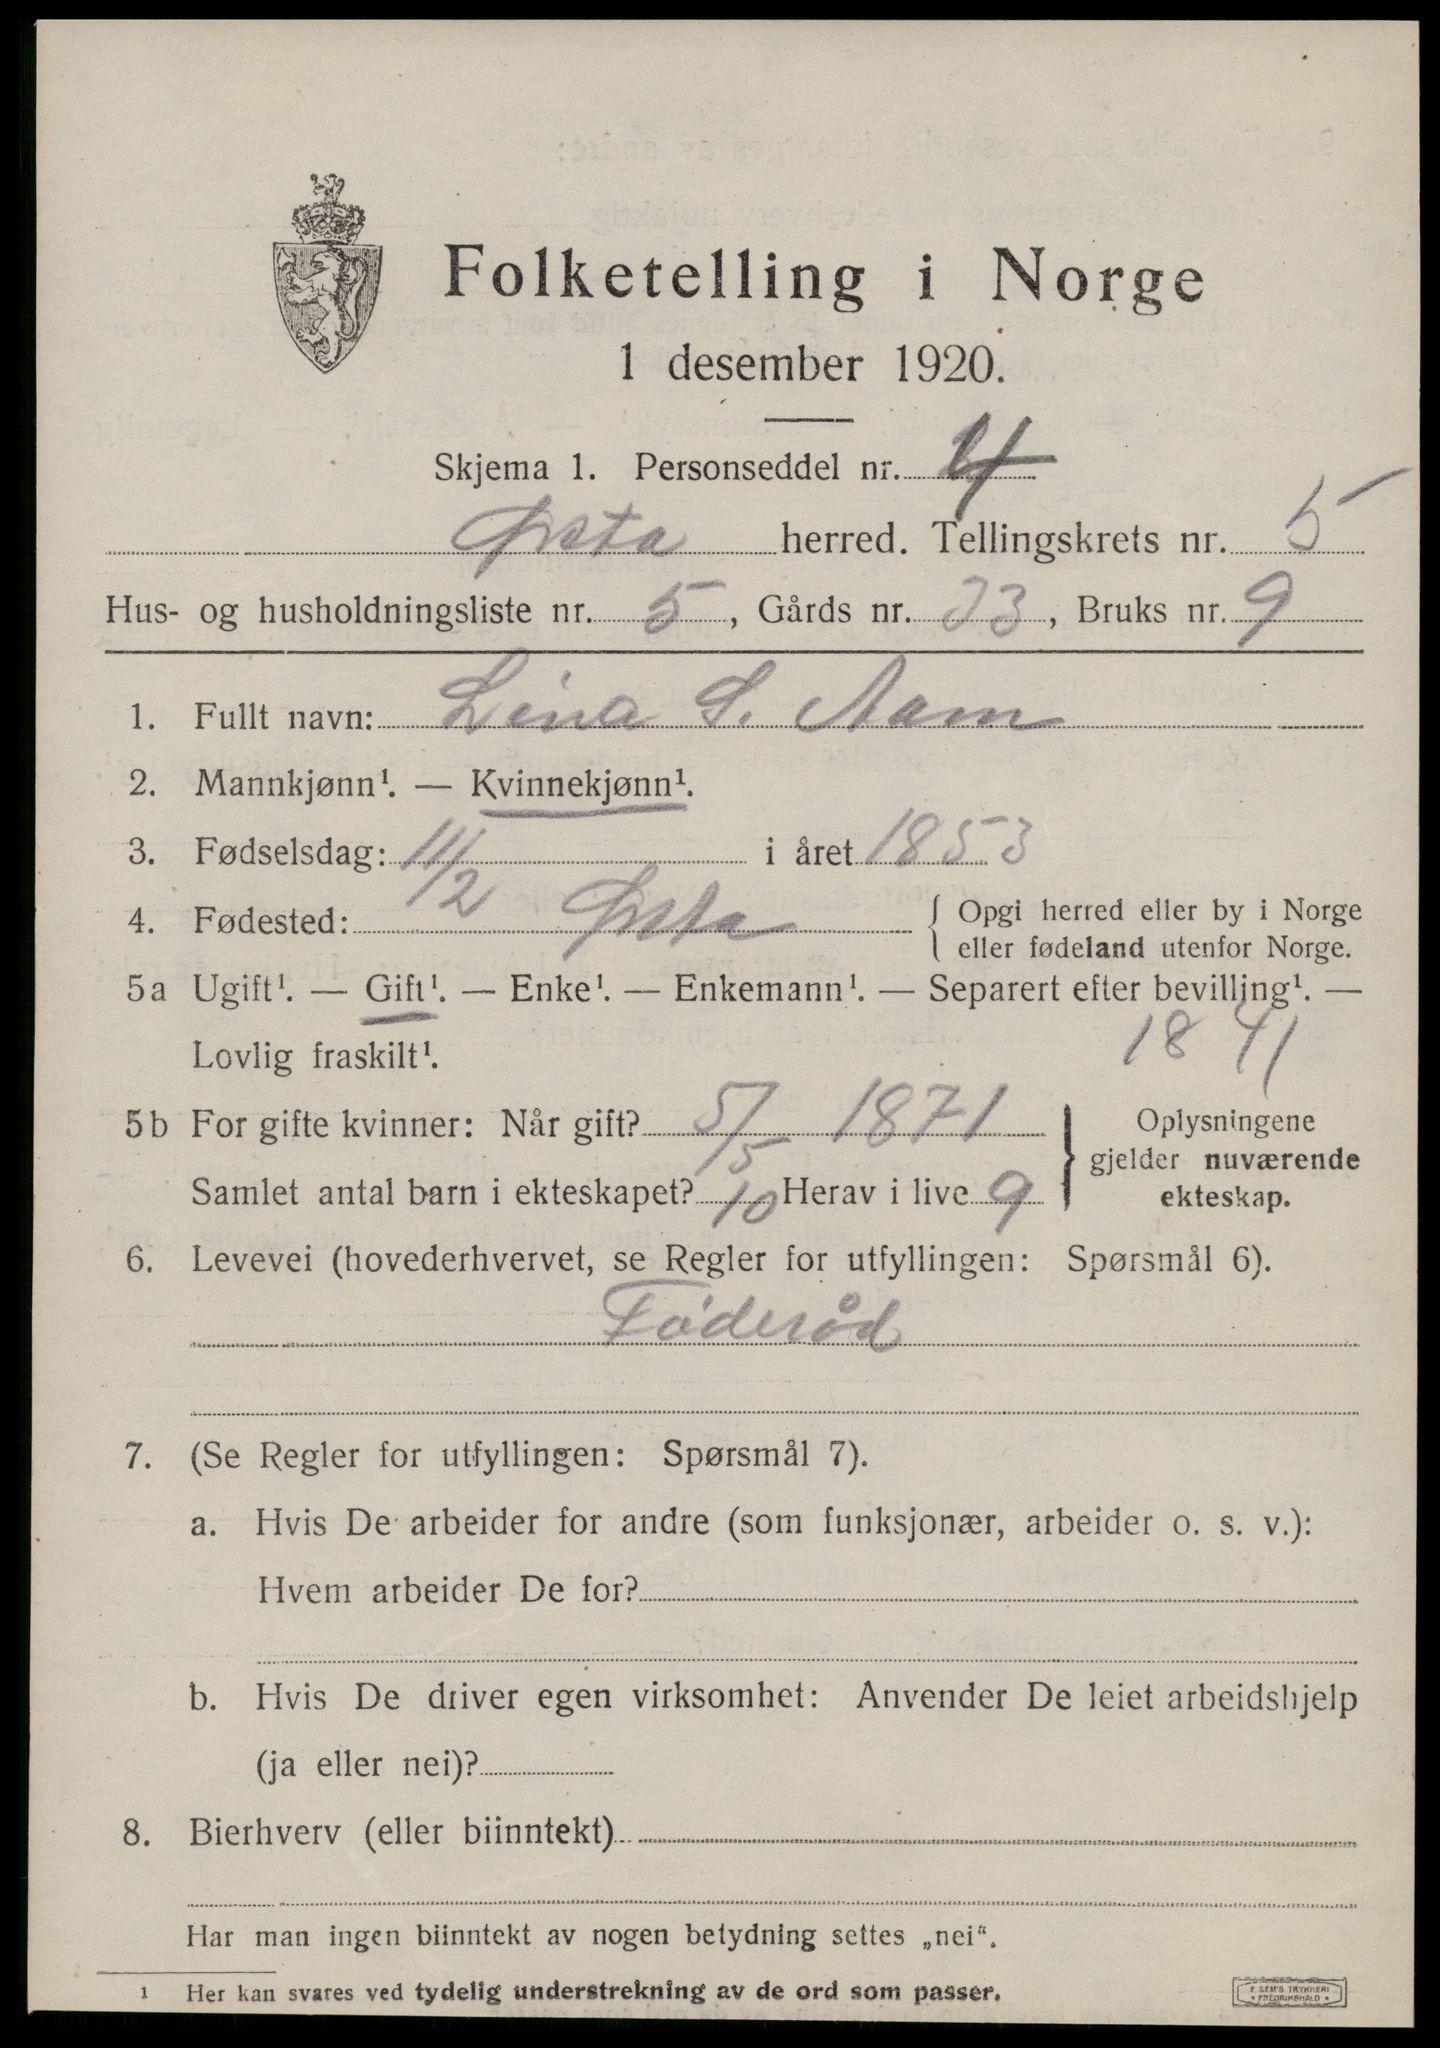 Folketelling i Norge
1 desember 1920.
Skjema 1. Personseddel nr. 4
Ørsta herred. Tellingskrets nr. 5
Hus- og husholdningsliste nr. 5, Gårds nr. 33, Bruks nr. 9
1. Fullt navn: Lina S. Aam
2. Mannkjønn¹. — Kvinnekjønn¹.
3. Fødselsdag: 11/2 i året 1853
4. Fødested: Ørsta { Opgi herred eller by i Norge
eller fødeland utenfor Norge.
5a Ugift¹. — Gift¹. — Enke¹. — Enkemann¹. — Separert efter bevilling¹. —
Lovlig fraskilt¹. 1841
5b For gifte kvinner: Når gift? 5/5 1871
Samlet antal barn i ekteskapet? 10 Herav i live 9
} Oplysningene
gjelder nuværende
ekteskap.
6. Levevei (hovederhvervet, se Regler for utfyllingen: Spørsmål 6).
Føderåd
7. (Se Regler for utfyllingen: Spørsmål 7).
a. Hvis De arbeider for andre (som funksjonær, arbeider o. s. v.):
Hvem arbeider De for?
b. Hvis De driver egen virksomhet: Anvender De leiet arbeidshjelp
(ja eller nei)?
8. Bierhverv (eller biinntekt)
Har man ingen biinntekt av nogen betydning settes „nei“.
1 Her kan svares ved tydelig understrekning av de ord som passer.
E SEM'S TRYKKERI
* FREDRIKSHALD *